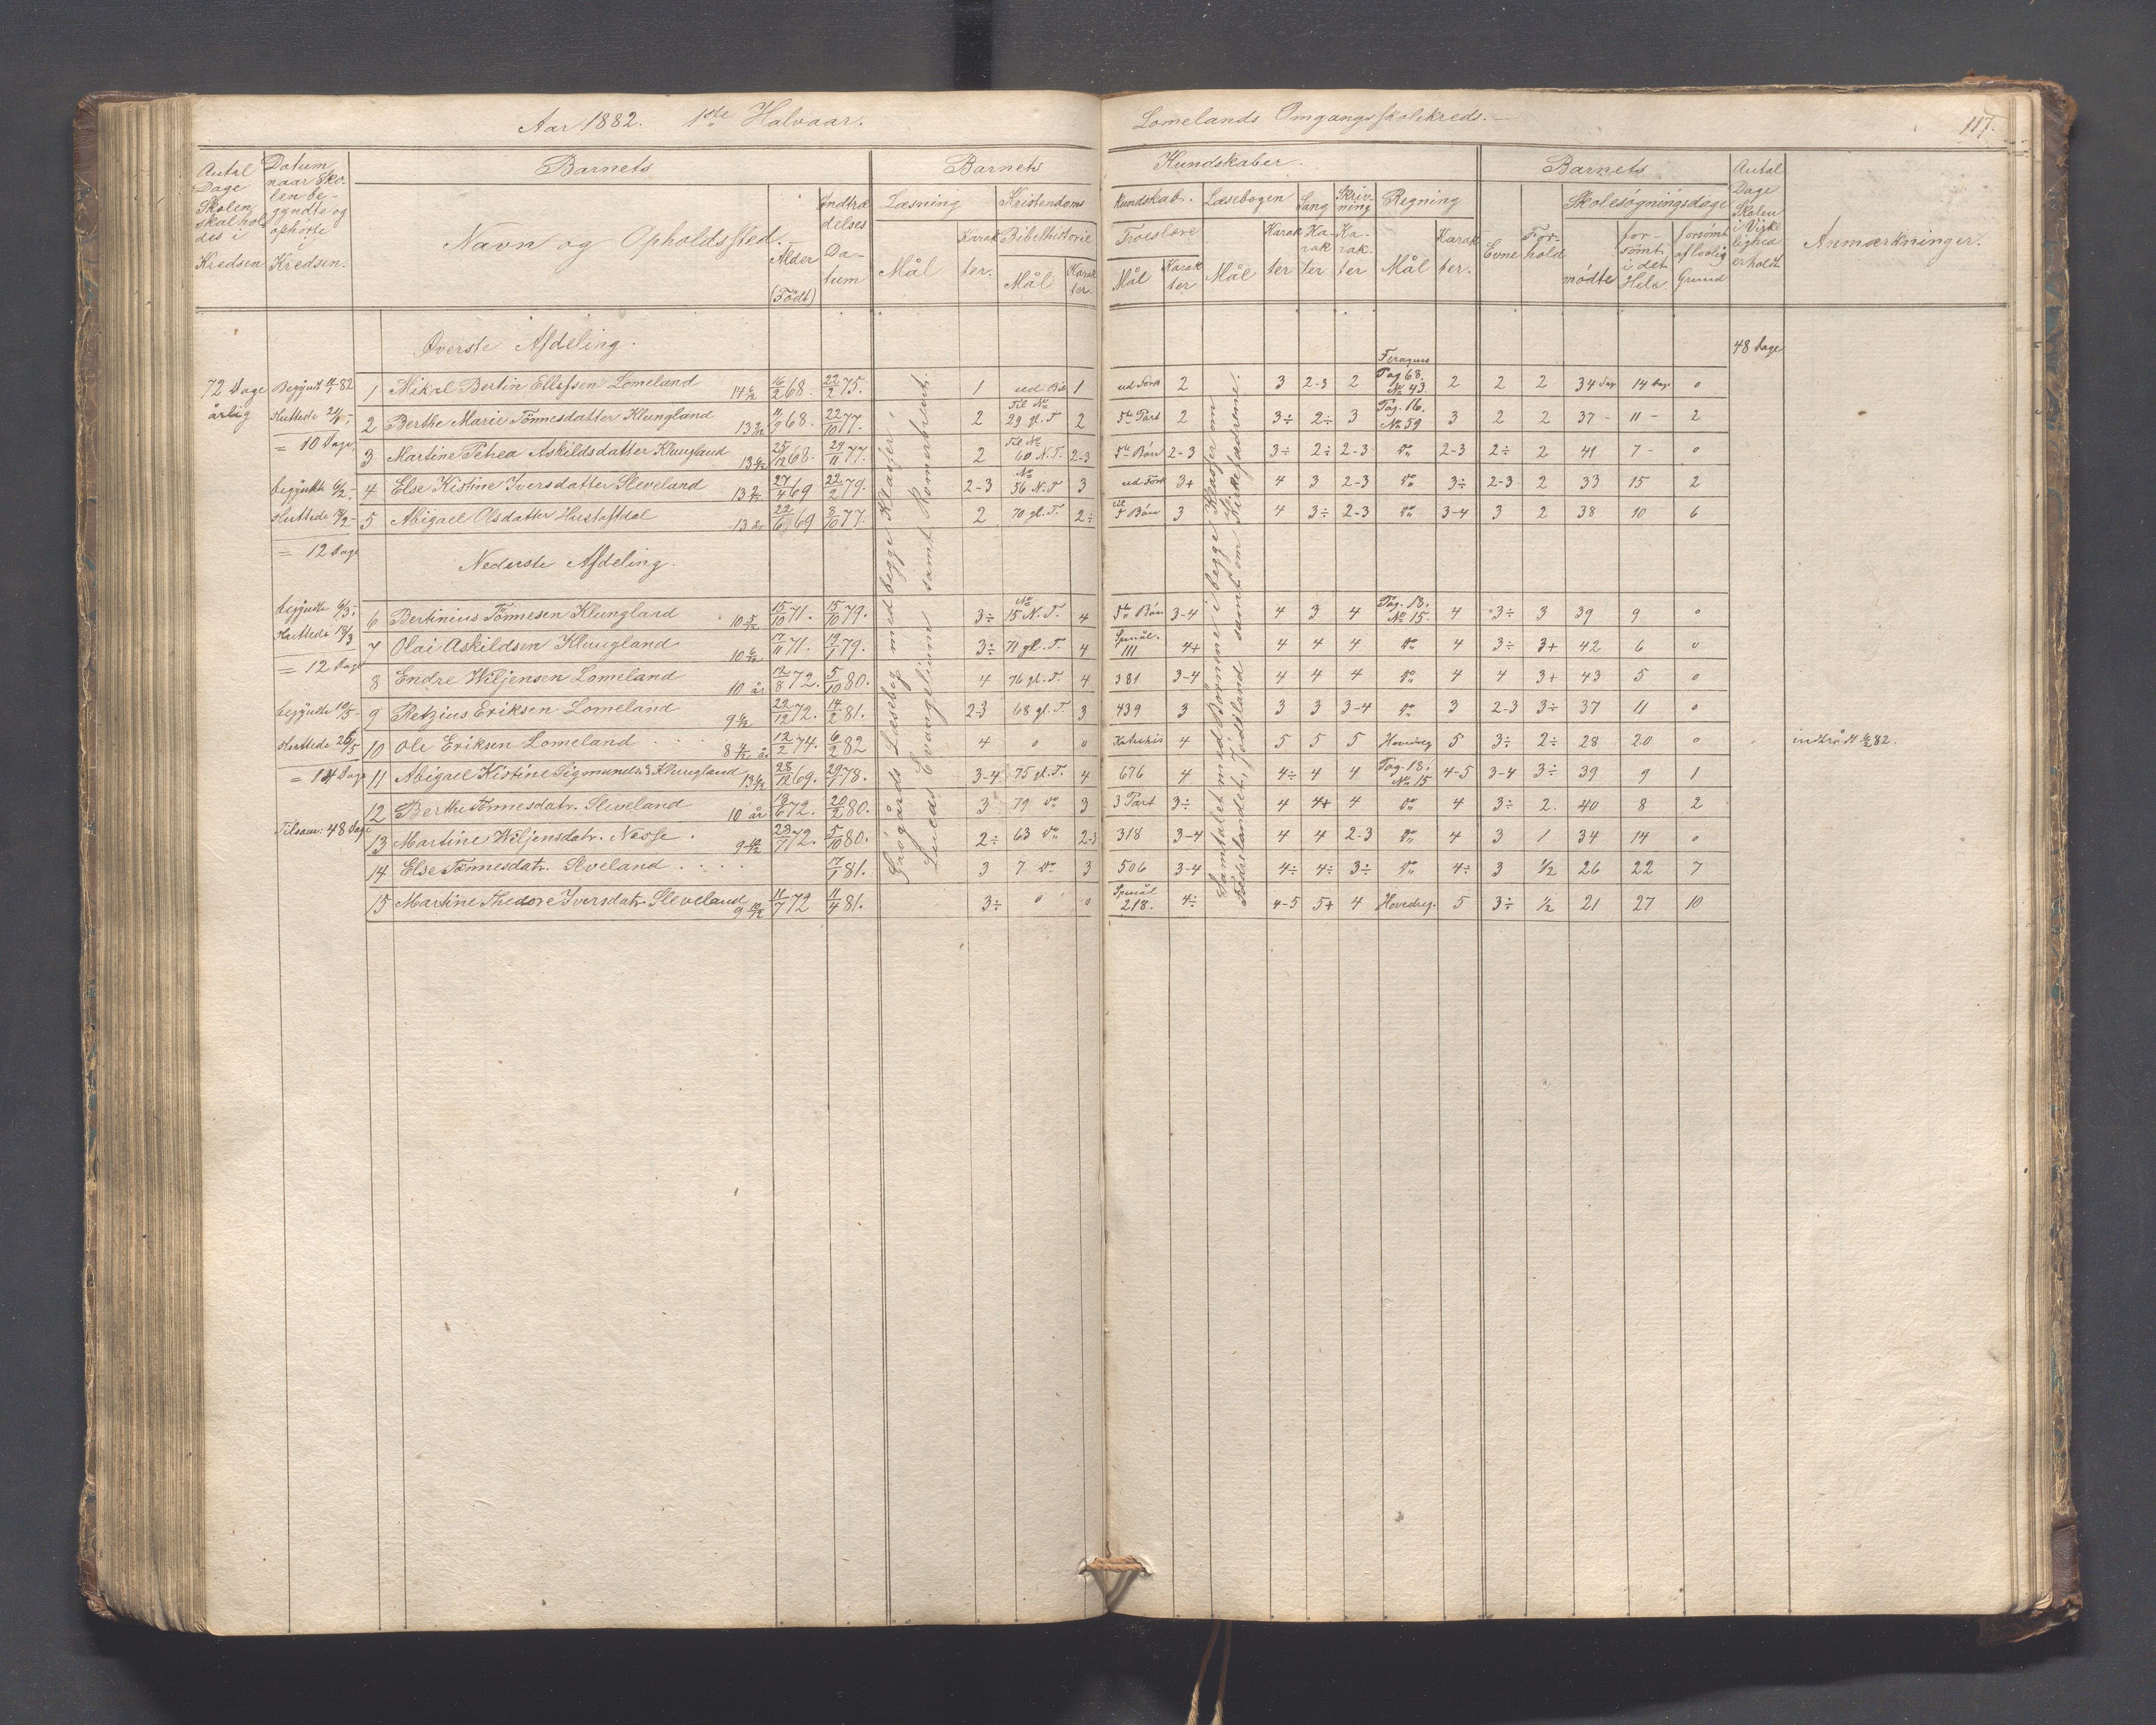 Aar 1882. 1ste Halvaar.
Lomelands Omgangsskolekreds.
117.
Antal Dage Skolen skal holdes i Kredsen
Datum naar Skolen begyndte og ophørte i Kredsen.
Barnets
Navn og Opholdssted.
Alder (Født)
Indtrædelses Datum
Barnets
Kundskaber.
Læsning
Mål
Karakter.
Kristendoms
Kundskab.
Bibelhistorie
Mål
Karakter.
Troeslære
Mål
Karakter
Læsebogen
Mål
Karakter
Sang
Karakter
Skrivning
Karakter
Regning
Mål
Karakter.
Barnets
Evne
Forhold
Skolesøgningsdage
mødte
forsømt i det Hele
forsømt af lovlig Grund
Antal Dage Skolen i Virkelighed er holdt
Anmærkninger.
Øverste Afdeling.
48 Dage
72 Dage årlig
1 Mikal Bertin Ellefsen Lomeland 14 16/2 68. 22/2 75. 1 ud Bib 1 ud Fork 2 3 2-3 2 Feragens Pag 68. No 43. 2 2 2 34 Dage 14 Dage 0
2 Berthe Marie Tönnesdatter Klungland 11/9 68. 22/10 77. 2 Til No 29 gl. T 2 5te Part 2 3÷ 2÷ 3 Pag. 16. No 59 3 2 2 37 - 11 - 2
= 10 Dage,
3 Martine Petrea Askildsdatter Klungland 25/12 68. 29/11 77. 2 Til No 60 N.T. 2-3 5te Bön 2-3 3÷ 2÷ 2-3 do 2-3 2÷ 2 41 7 - 0
4 Else Kistine Iversdatter Sleveland 27/4 69 22/2 79. 2-3 No 56 N.T 3 ud Fork 3+ 4 3 2-3 do 3÷ 2-3 2 33 15 2
5 Abigael Olsdatter 22/6 69 8/10 77. 2 70 gl. T. 2÷ til 5 Bön 3 4 3÷ 2-3 do 3-4 3 2 38 10 6
= 12 Dage
Nederste Afdeling.
6 Bertinius Tönnesen Klungland 15/10 71. 15/10 79. 3÷ No 15 N.T. 4 5te Bön 3-4 4 3 4 Pag. 13. No 15. 4 3÷ 3 39 9 0
7 Olai Askildsen Klungland 17/11 71. 19/1 79. 3÷ 71 gl. T. 4 Spmål. 111 4+ 4 4 4 do 4 3÷ 3+ 42 6 0
= 12 Dage
8 Endre Wiljensen Lomeland 10 år 12/8 72. 5/10 80. 4 76 gl. T. 4 381 3-4 4 4 4 do 4 4 3+ 43 5 0
9 Retzius Eriksen Lomeland 22/12 72. 14/2 81. 2-3 68 gl. T. 3 439 3 3 3 3-4 do 3 2-3 3÷ 37 11 0
10 Ole Eriksen Lomeland 12/2 74. 6/2 82 4 0 0 Katekis 4 5 5 5 Hovedreg 5 3÷ 2÷ 28 20 0 indtrådt 6/2 82.
= 14 Dage
11 Abigael Kistine Sigmundsd Klungland 28/12 69. 29/1 78. 3-4 75 gl. T. 4 676 4 4÷ 4 4 Pag. 18. No 15 4-5 3-4 3÷ 39 9 1
12 Berthe Tönnesdatr. Sleveland 10 år 18/6 72. 20/2 80. 3 79 do 3 3 Part 3÷ 4 4+ 4 do 4 3÷ 2. 40 8 2
Tilsam: 48 Dage
13 Martine Wiljensdatr. Nesse 29/7 72. 5/10 80. 2÷ 63 do 2-3 318 3-4 4 4 2-3 do 4 3 1 34 14 0
14 Else Tönnesdatr. Sleveland 17/1 81. 3 7 do 3 506 3-4 4÷ 4÷ 3÷ do 4÷ 3 1/2 26 22 7
15 Martine Thedore Iversdatr. Sleveland 11/7 72 11/4 81. 3÷ 0 0 Spmål 218. 4÷ 4-5 5+ 4 Hovedreg. 5 3÷ 1/2 21 27 10
Læsebog med begge Klasser,
Lucas Evangelium samt Romerbrevet.
Samtalet med Börnene i begge Klasser om
Fædrelandet, Jødeland samt om Kirkefædrene.